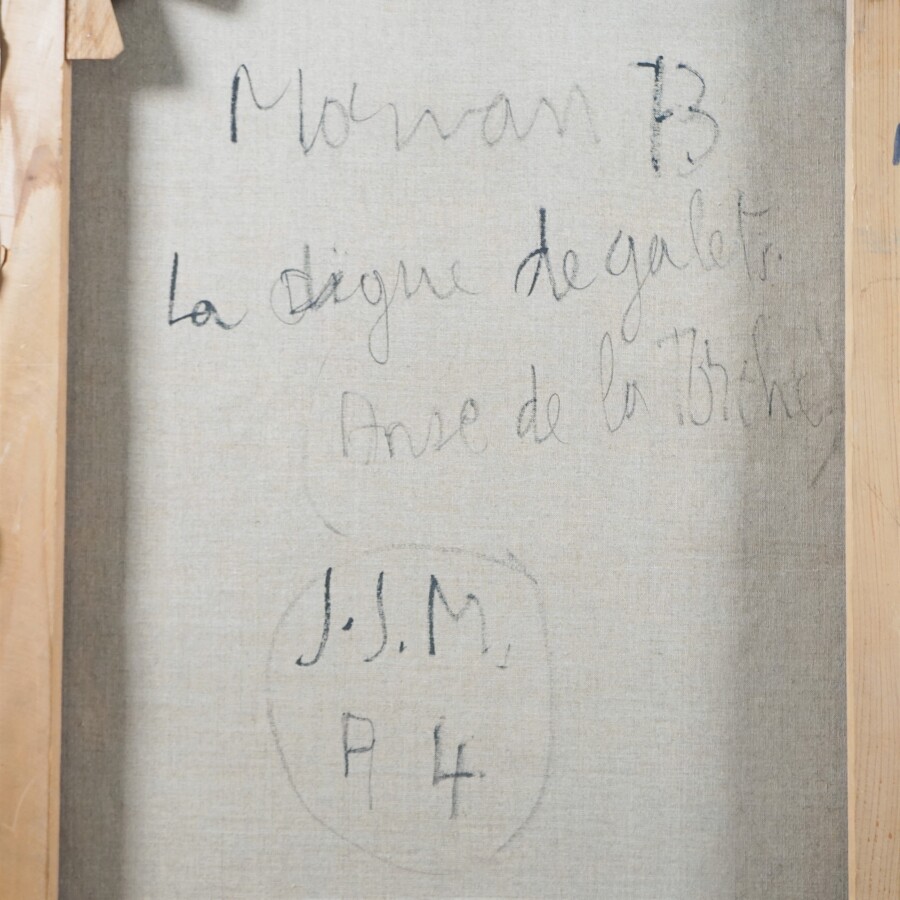 Morvan 73
La digue de galets.
(Anse de la
J.J.M.
A 4